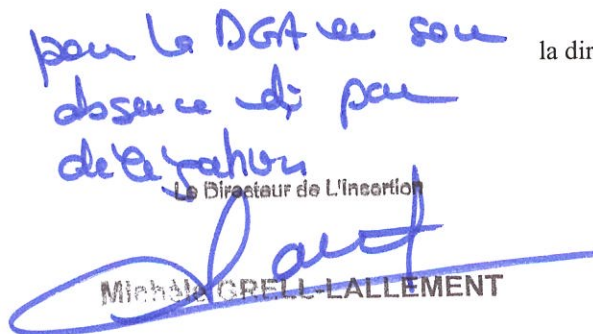 pour la DGA en son
la dir
absence et par
délégation
Le Directeur de L'insertion
Michèle GRELL-LALLEMENT